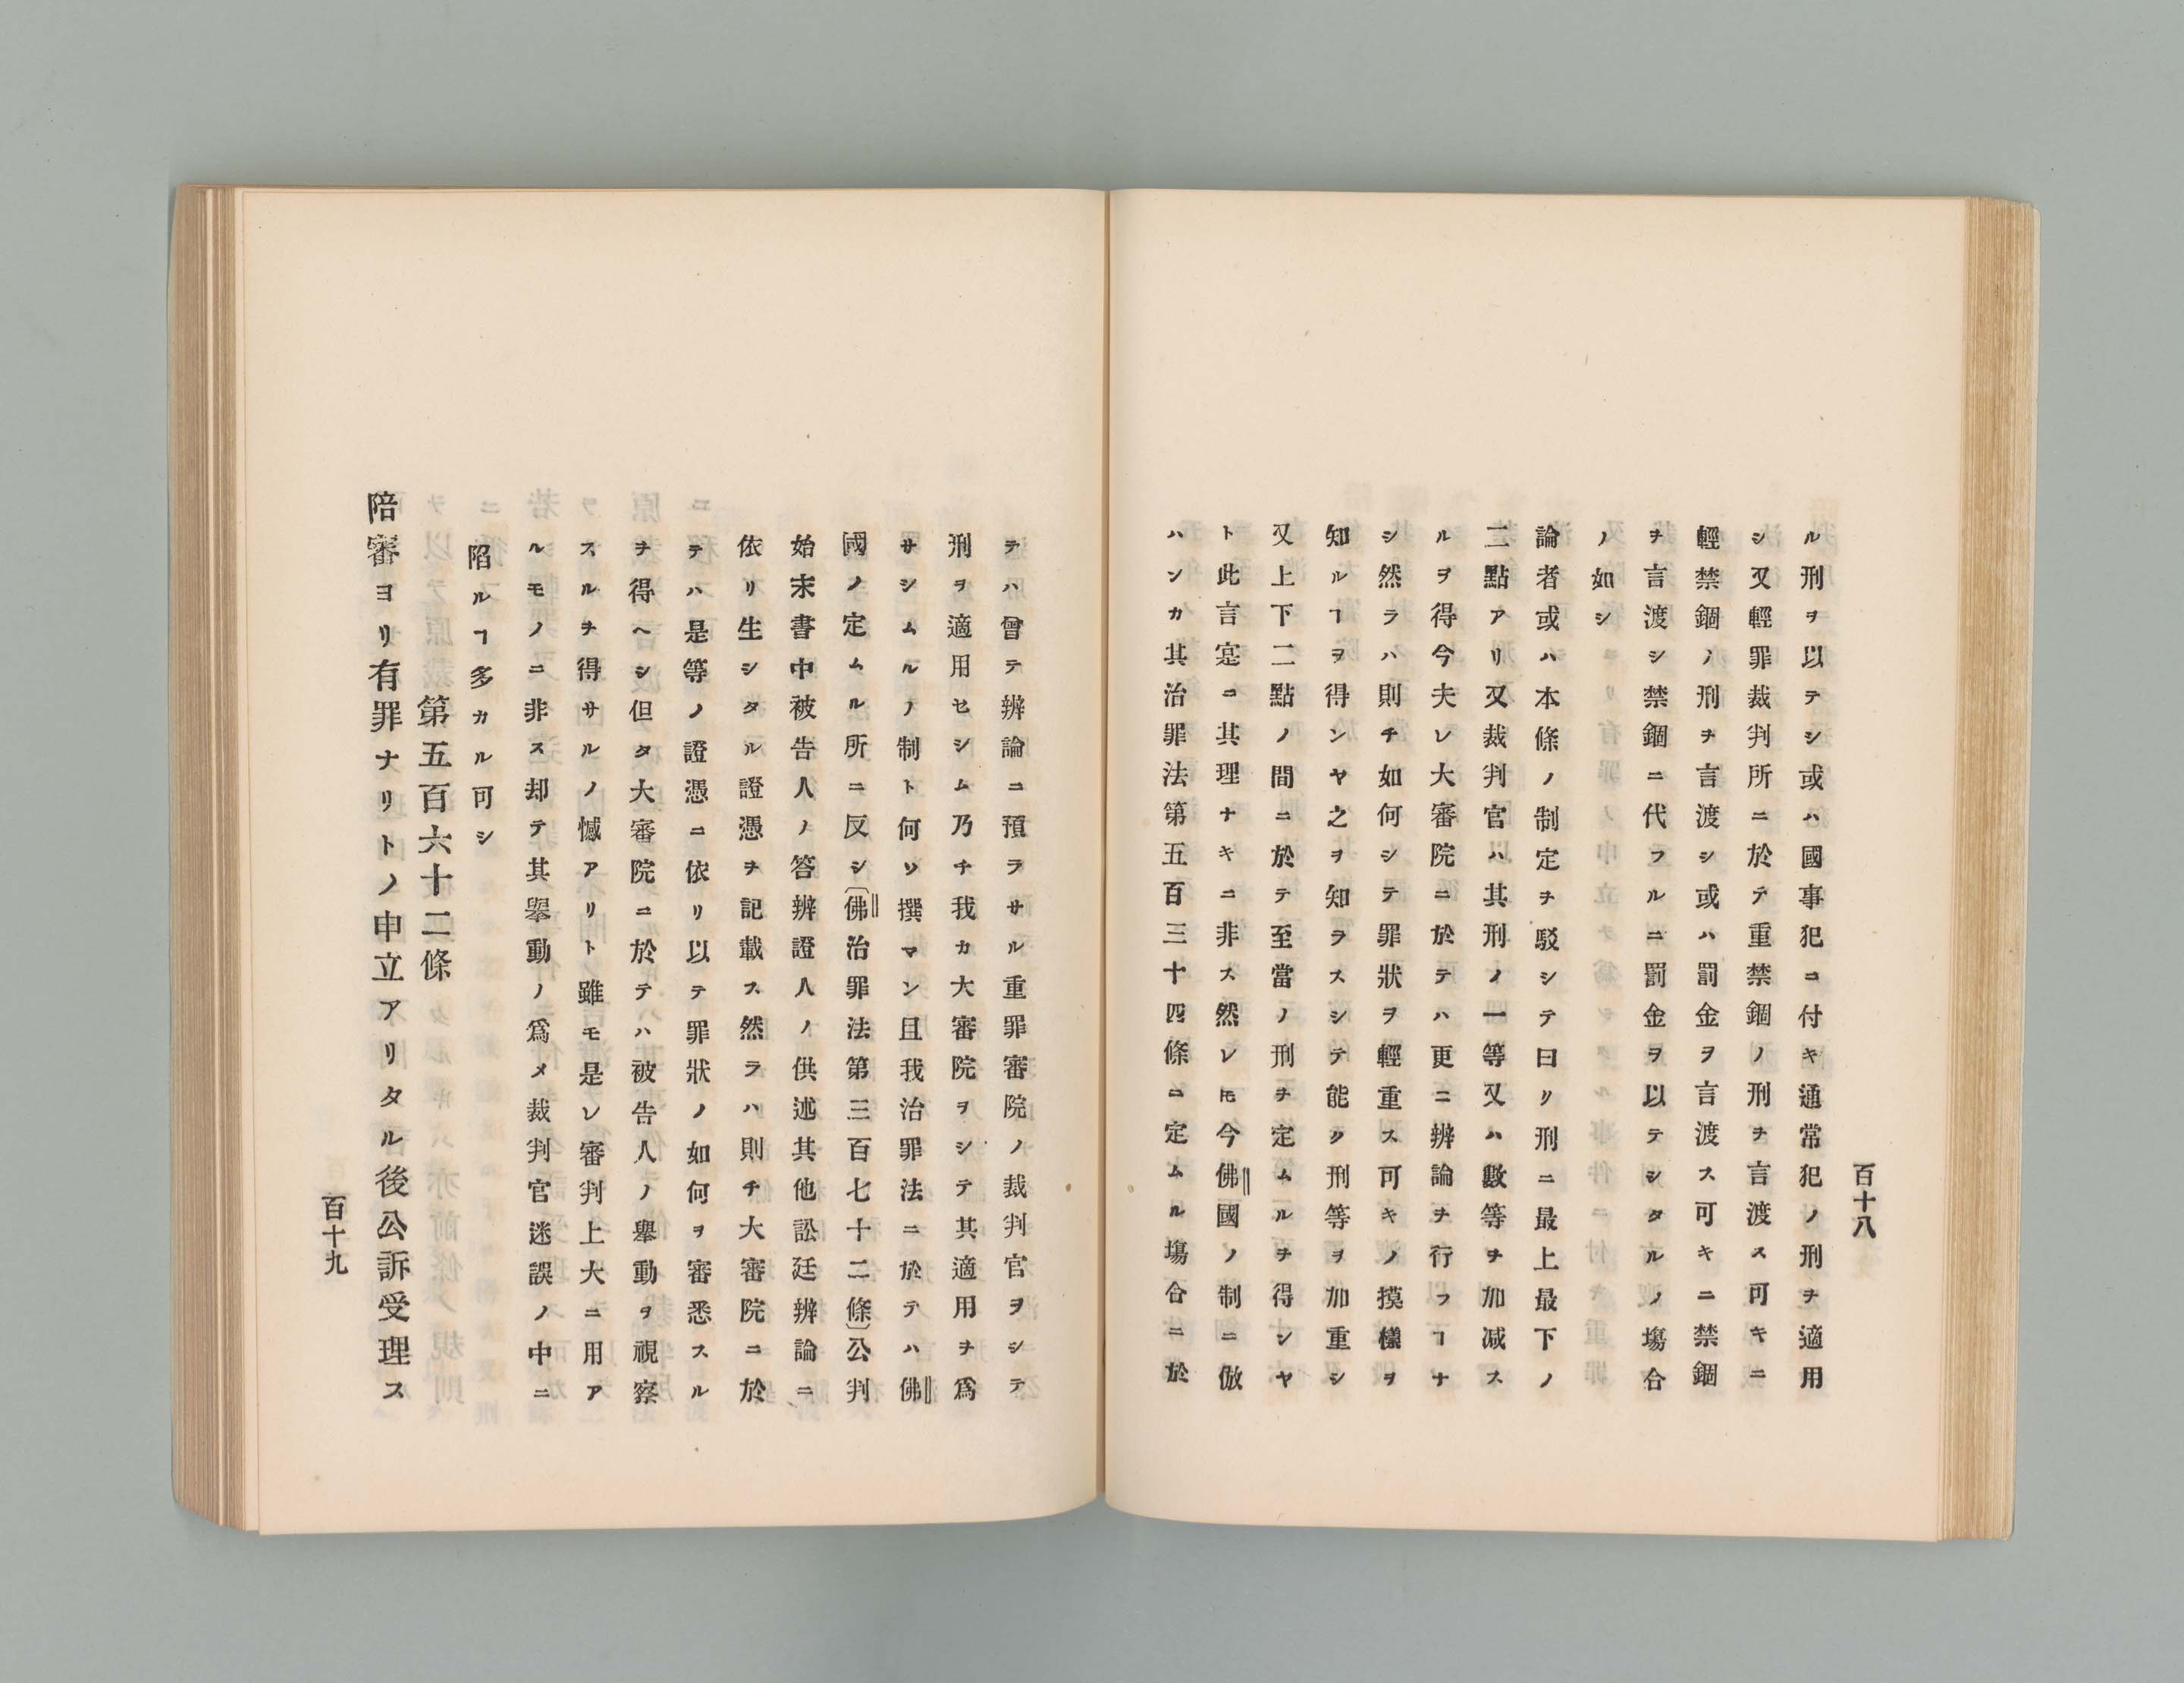 百十八
ル刑ヲ以テシ或ハ國事犯ニ付キ通常犯ノ刑ヲ適用
シ又輕罪裁判所ニ於テ重禁錮ノ刑ヲ言渡ス可キニ
輕禁錮ノ刑ヲ言渡シ或ハ罰金ヲ言渡ス可キニ禁錮
ヲ言渡シ禁錮ニ代フルニ罰金ヲ以テシタルノ塲合
ノ如シ
論者或ハ本條ノ制定ヲ駁シテ曰リ刑ニ最上最下ノ
二點アリ又裁判官ハ其刑ノ一等又ハ數等ヲ加減ス
ルヲ得今夫レ大審院ニ於テハ更ニ辨論ヲ行フヿナ
シ然ラハ則チ如何シテ罪狀ヲ輕重ス可キノ摸樣ヲ
知ルヿヲ得ンヤ之ヲ知ラスシテ能ク刑等ヲ加重シ
又上下二點ノ間ニ於テ至當ノ刑ヲ定ムルヲ得ンヤ
ト此言寔ニ其理ナキニ非ス然レ𪜈今佛國ノ制ニ倣
ハンカ其治罪法第五百三十四條ニ定ムル塲合ニ於
テハ曾テ辨論ニ預ラサル重罪審院ノ裁判官ヲシテ
刑ヲ適用セシム乃チ我カ大審院ヲシテ其適用ヲ爲
サシムルノ制ト何ソ撰マン且我治罪法ニ於テハ佛
國ノ定ムル所ニ反シ〔佛治罪法第三百七十二條〕公判
始末書中被告人ノ答辨證人ノ供述其他訟廷辨論ニ
依リ生シタル證憑ヲ記載ス然ラハ則チ大審院ニ於
テハ是等ノ證憑ニ依リ以テ罪狀ノ如何ヲ審悉スル
ヲ得ヘシ但タ大審院ニ於テハ被告人ノ擧動ヲ視察
スルヲ得サルノ憾アリト雖モ是レ審判上大ニ用ア
ルモノニ非ス却テ其擧動ノ爲メ裁判官迷誤ノ中ニ
陷ルヿ多カル可シ
第五百六十二條
陪審ヨリ有罪ナリトノ申立アリタル後公訴受理ス
百十九